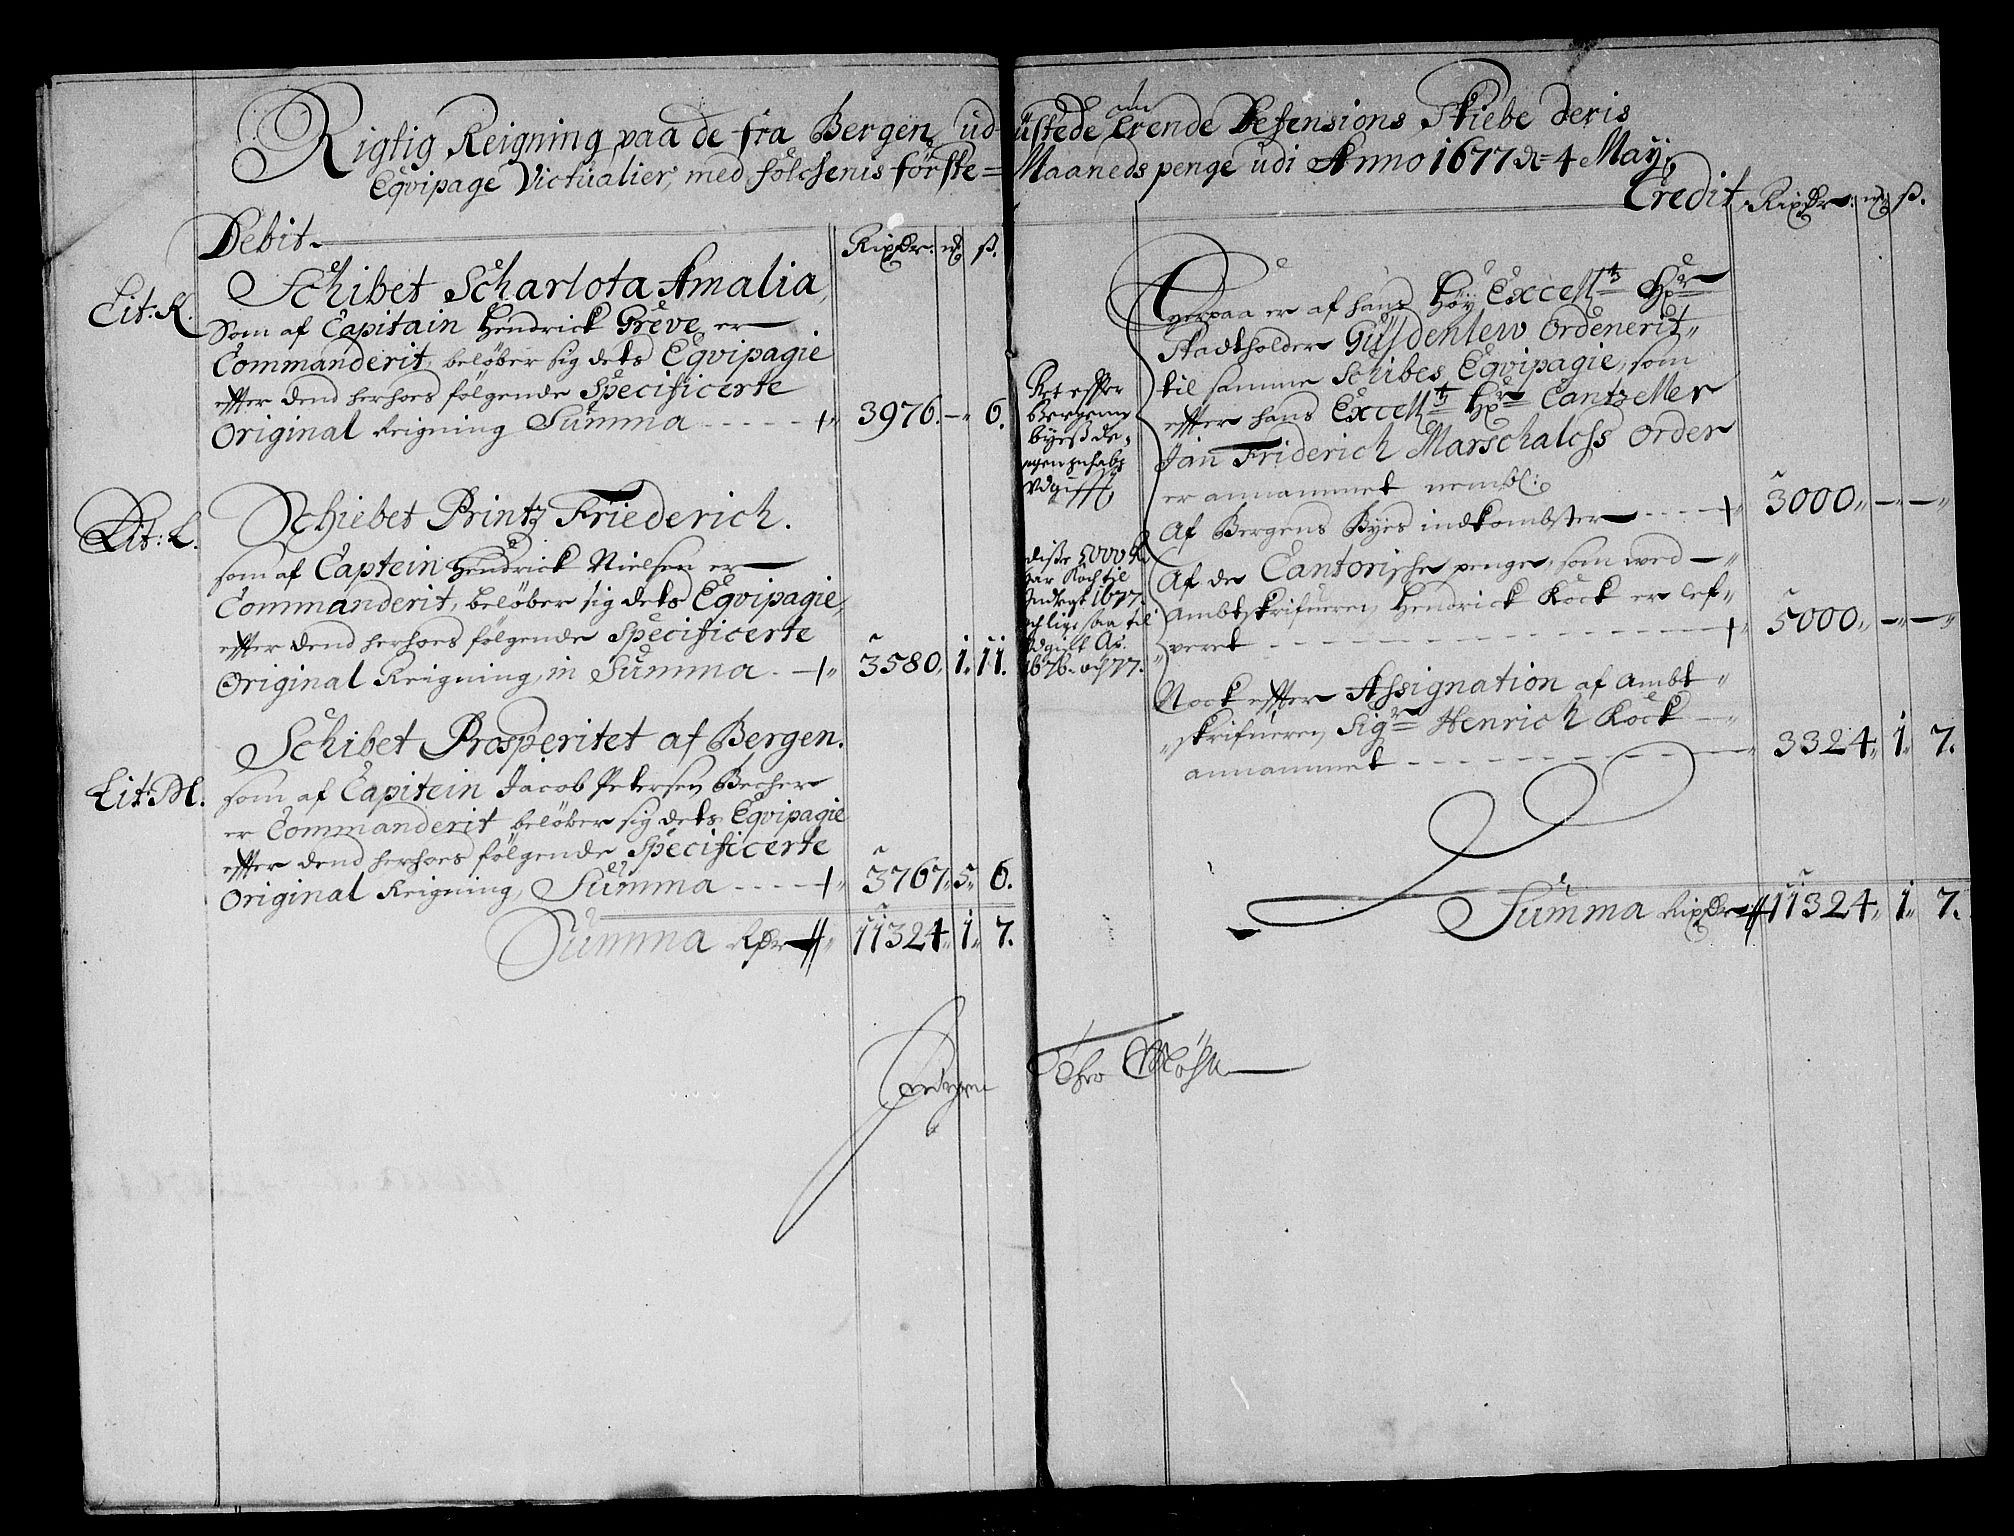 Rigtig Reigning paa de fra Bergen ud üstede Defensions Skiebe deris
Eqvipage Victualier, med folchenis förste = Maaneds penge udi Anno 1677 d= 4 May.
Debit. Rixdr: mk ß.
Lit: K. Schibet Scharlota Amalia,
Som af Capitain Hendrick Greve er
Commanderit, beløber sig dets Eqvipagie
effter dend herhoes følgende Specificerte
Original Reigning Summa - - - - - 3976. — 6.
Lit: L. Schiebet Printz Friederich.
som af Captein Hendrick Nielsen er
Commanderit, beløber sig dets Eqvipagie,
effter dend herhoes følgende Specificerte
Original Reigning, in Summa. 3580. 1. 11.
Schibet Prosperitet af Bergen.
Lit: M. som af Capitein Jacob Petersen Becher
er Commanderit beløber sig dets Eqvipagie
effter dend herhoes følgende Specificerte
Original Reigning, Summa - - - - 3767. 5. 6.
Summa Rdr 11324. 1. 7.
Credit. Rixdr: mk ß.
er af hans Høy Excelltz Hr
Stadtholder Güldenlew Ordenerit
til samme Schibes Eqvipagie, som
effter hans Excelltz Hr Cantzeller
Jan Friderich Marschalchs Order
er annammet nembl:
Af Bergens Byes indkombster - - - - 3000. — —
Af de Cantorische penge, som wed
Ambtskrifueren, Hendrick Kock er lef-
veret - - - - 5000. — —
Nock effter Assignation af Ambt
skrifueren, Sigr Henrich Kock
annammet - - - - 3324. 1. 7.
Summa Rixdr 11324. 1. 7.
effter
Bergens
byeß
Udgifft
diße 5000 R
har Koch til
Indtegt 1677
saa til
Udgift Ao
1676 og 77.